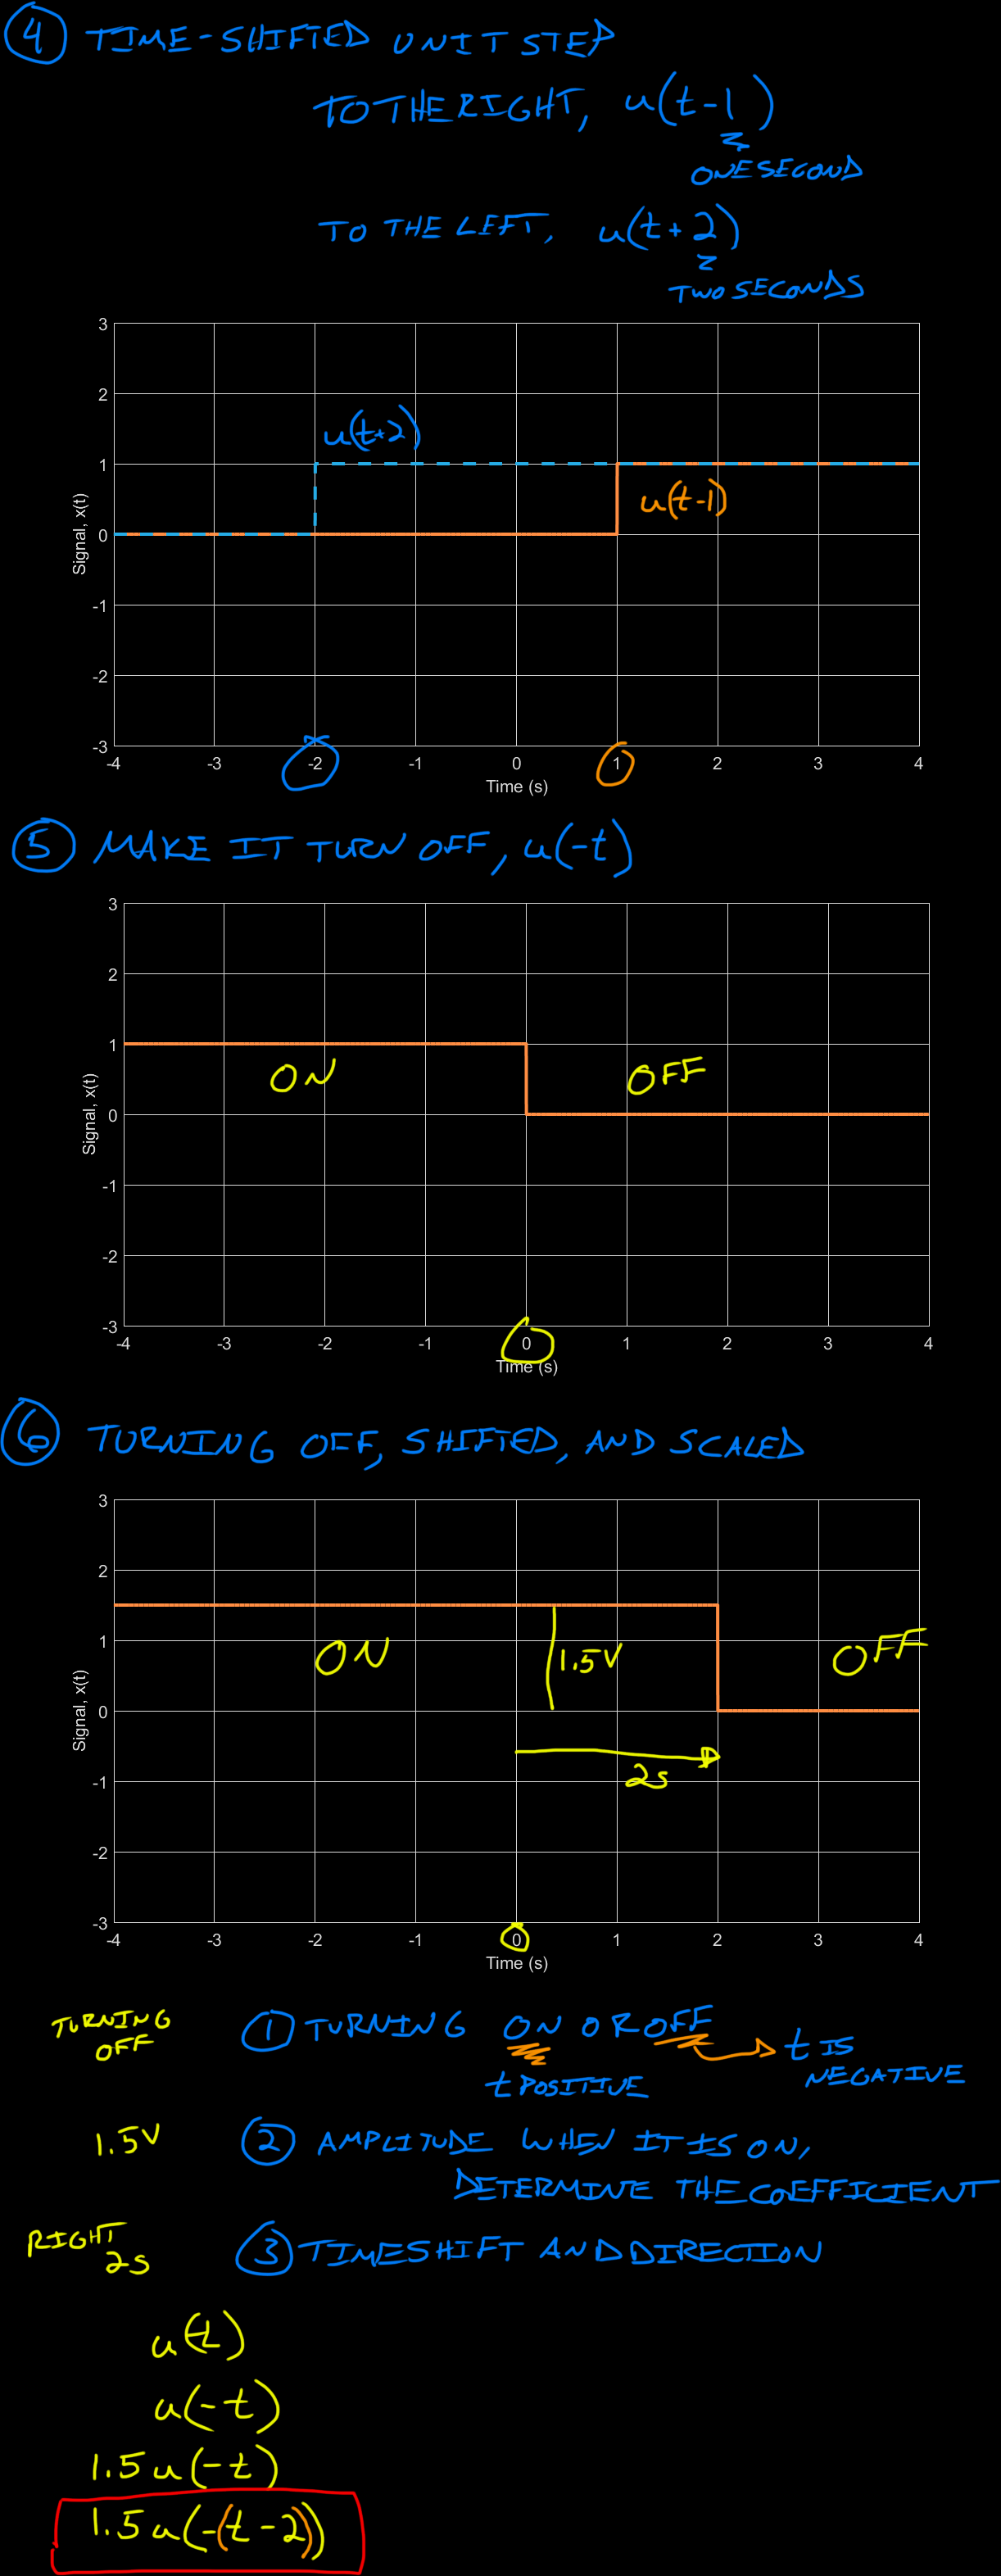 ④ TIME-SHIFTED UNIT STEP
TO THE RIGHT, u(t-1)
ONE SECOND
TO THE LEFT, u(t+2)
TWO SECONDS
3
2
u(t+2)
1
u(t-1)
0
-1
-2
-3
Signal, x(t)
-4 -3 -2 -1 0 1 2 3 4
Time (s)
⑤ MAKE IT TURN OFF, u(-t)
3
2
1
ON OFF
0
-1
-2
-3
Signal, x(t)
-4 -3 -2 -1 0 1 2 3 4
Time (s)
⑥ TURNING OFF, SHIFTED, AND SCALED
3
2
1
ON 1.5V OFF
0
2s
-1
-2
-3
Signal, x(t)
-4 -3 -2 -1 0 1 2 3 4
Time (s)
TURNING OFF
① TURNING ON OR OFF → t IS NEGATIVE
t POSITIVE
1.5V
② AMPLITUDE WHEN IT IS ON,
DETERMINE THE COEFFICIENT
RIGHT 2s
③ TIME SHIFT AND DIRECTION
u(t)
u(-t)
1.5u(-t)
1.5u(-(t-2))